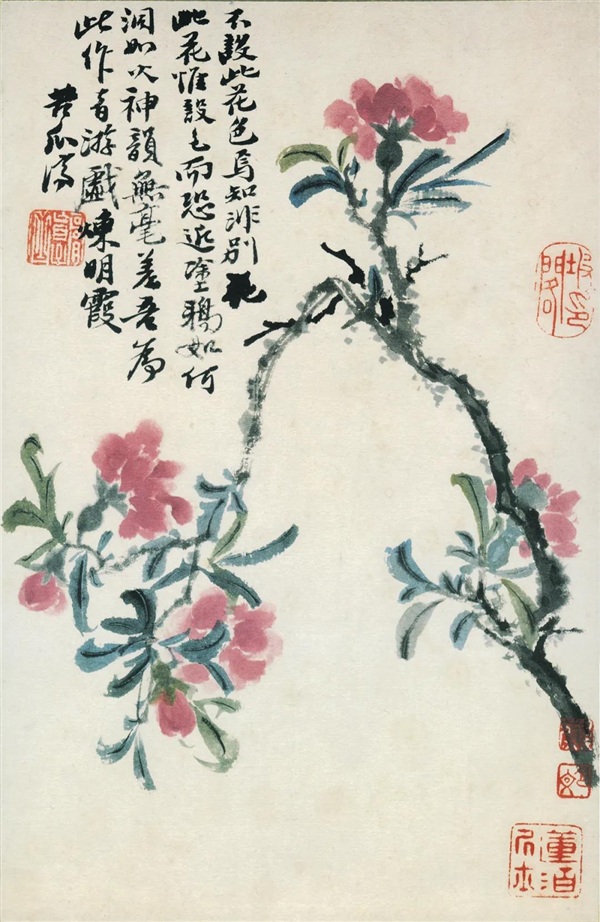 不設此花色焉知非別花
此花惟設色而恐近塗鴉如何
洞如火神韻無毫差吾為
此作者游戲煉明霞
苦瓜濟